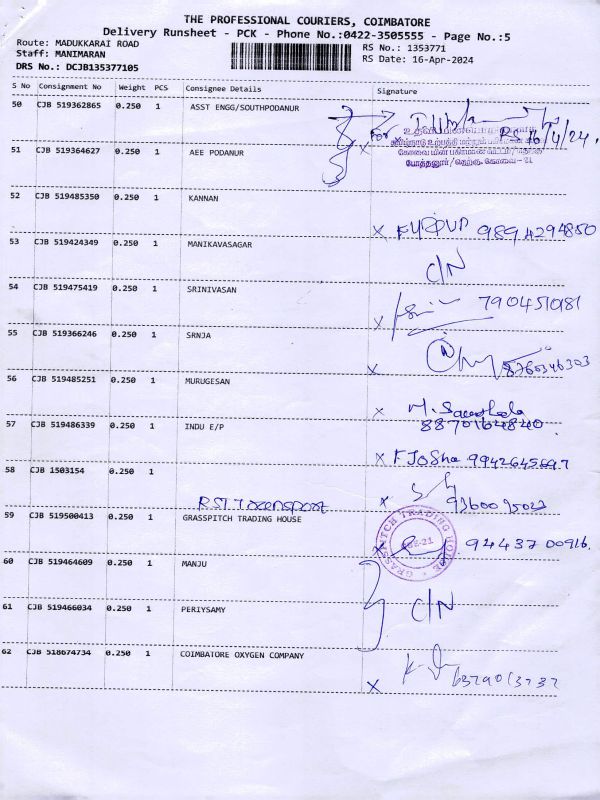 THE PROFESSIONAL COURIERS, COIMBATORE
Delivery Runsheet - PCK - Phone No.:0422-3505555 - Page No.:5
Route: MADUKKARAI ROAD
RS No.: 1353771
Staff: MANIMARAN
RS Date: 16-Apr-2024
DRS No.: DCJB135377105
S No Consignment No Weight PCS Consignee Details Signature
50 CJB 519362865 0.250 1 ASST ENGG/SOUTHPODANUR
For 16/4/24.
51 CJB 519364627 0.250 1 AEE PODANUR
போத்தனூர்/தெற்கு. கோவை-21
52 CJB 519485350 0.250 1 KANNAN
X 9894294850
53 CJB 519424349 0.250 1 MANIKAVASAGAR
C/N
54 CJB 519475419 0.250 1 SRINIVASAN
X 790451081
55 CJB 519366246 0.250 1 SRNJA
X 8760346303
56 CJB 519485251 0.250 1 MURUGESAN
X M.
57 CJB 519486339 0.250 1 INDU E/P
8870164840
X 9942645697
58 CJB 1503154 0.250 1
RST Transport
X
59 CJB 519500413 0.250 1 GRASSPITCH TRADING HOUSE
GRASSPITCH TRADING HOUSE
X 94437 00916.
60 CJB 519464609 0.250 1 MANJU
61 CJB 519466034 0.250 1 PERIYSAMY
C/N
62 CJB 518674734 0.250 1 COIMBATORE OXYGEN COMPANY
X